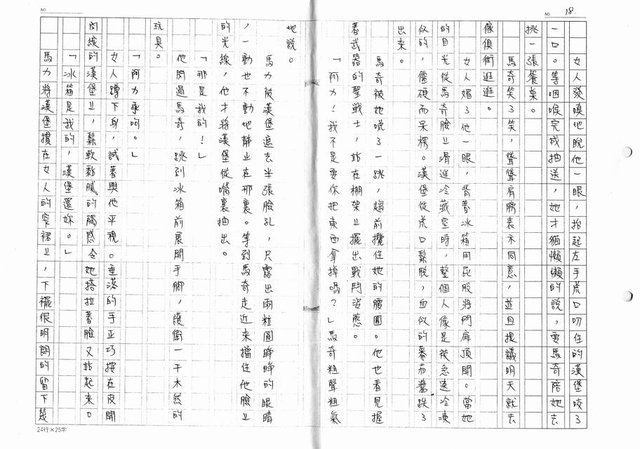 18
女人發嗔地睨他一眼，抬起左手虎口叨住的漢堡咬了
一口。等咽喉完成抽送，她才猫懶懶的說，要馬奇陪她去
挑一張餐桌。
馬奇笑了笑，聳聳肩膀表示同意，並且提議明天就去
像俱街逛逛。
女人掃了他一眼，背著冰箱用屁股將門肩頂開。當她
的目光從馬奇臉上滑進冷藏室時，整個人像是被急速冷凍
似的，僵硬而呆楞。漢堡從虎口鬆脫，血似的蕃茄醬捉了
出來。
馬奇被她嚇了一跳，趨前攬住她的臂圈。他也看見握
著武器的聖戰士，站在棚架上擺出戰鬥姿態。
「阿力！我不是要你把東西拿掉嗎？」馬奇粗聲粗氣
地說。
馬力被漢堡遮去半張臉孔，只露出兩粒圓睜睜的眼睛
，一動也不動地靜止在那裏。等到馬奇走近來擋住他臉上
的光線，他才將漢堡從嘴裏抽出。
「那是我的！」
他閃過馬奇，跳到冰箱前展開手腳，護衛一干木然的
玩具。
「阿力乖呵。」
女人蹲下身，試著與他平視。垂漾的手正巧按在皮開
肉綻的漢堡上，鬆軟黏膩的觸感令她搭拉著臉又站起來。
「冰箱是我的，漢堡還妳。」
馬力將漢堡摜在女人的窄裙上，下襬很明朗的留下楚
20行×25字